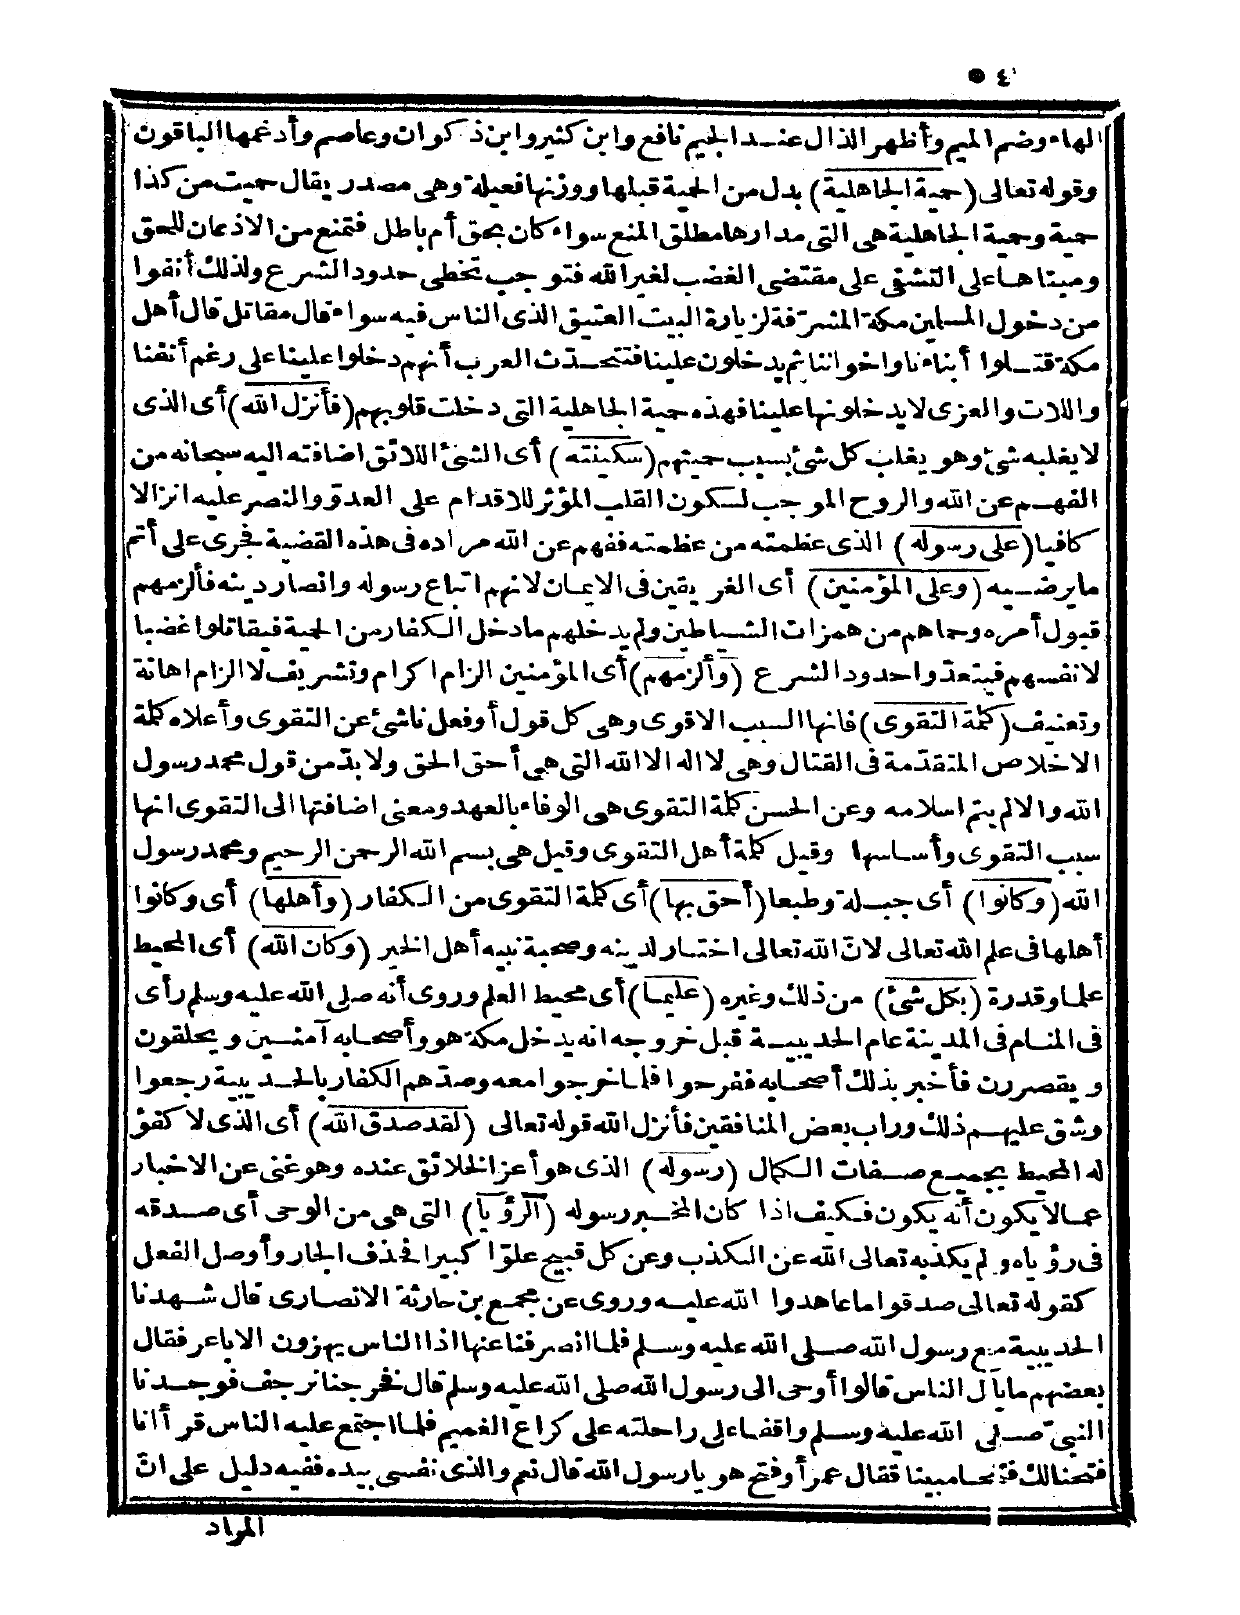 ٤٠
الهاء وضم الميم وأظهر الذال عند الجيم نافع وابن كثير وابن ذكوان وعاصم وأدغمها الباقون
وقوله تعالى (حمية الجاهلية) بدل من الحمية قبلها ووزنها فعيلة وهى مصدر يقال حميت من كذا
حمية وحمية الجاهلية هى التى مدارها مطلق المنع سواء كان بحق أم باطل فتمنع من الاذعان للحق
ومبناها على التشفى على مقتضى الغضب لغير الله فتوجب تخطى حدود الشرع ولذلك أنفوا
من دخول المسلمين مكة المشرّفة لزيارة البيت العتيق الذى الناس فيه سواء قال مقاتل قال أهل
مكة قتلوا أبناءنا واخواننا ثم يدخلون علينا فتتحدّث العرب أنهم دخلوا علينا على رغم أنفنا
واللات والعزى لا يدخلونها علينا فهذه حمية الجاهلية التى دخلت قلوبهم (فأنزل الله) أى الذى
لا يغلبه شئ وهو يغلب كل شئ بسبب حميتهم (سكينته) أى الشئ اللائق اضافته اليه سبحانه من
الفهم عن الله والروح الموجب لسكون القلب المؤثر للاقدام على العدوّ والنصر عليه انزالا
كافيا (على رسوله) الذى عظمته من عظمته ففهم عن الله مراده فى هذه القضية فجرى على أتم
ما يرضيه (وعلى المؤمنين) أى الغريقين فى الايمان لانهم اتباع رسوله وانصار دينه فألزمهم
قبول أمره وحماهم من همزات الشياطين ولم يدخلهم ما دخل الكفار من الحمية فيقاتلوا غضبا
لانفسهم فيتعدّوا حدود الشرع (وألزمهم) أى المؤمنين الزام اكرام وتشريف لا الزام اهانة
وتعنيف (كلمة التقوى) فانها السبب الاقوى وهى كل قول أو فعل ناشئ عن التقوى وأعلاه كلمة
الاخلاص المتقدّمة فى القتال وهى لا اله الا الله التى هى أحق الحق ولا بدّ من قول محمد رسول
الله والا لم يتم اسلامه وعن الحسن كلمة التقوى هى الوفاء بالعهد ومعنى اضافتها الى التقوى انها
سبب التقوى وأساسها وقيل كلمة أهل التقوى وقيل هى بسم الله الرحمن الرحيم ومحمد رسول
الله (وكانوا) أى جبلة وطبعا (أحق بها) أى كلمة التقوى من الكفار (وأهلها) أى وكانوا
أهلها فى علم الله تعالى لانّ الله تعالى اختار لدينه وصحبة نبيه أهل الخير (وكان الله) أى المحيط
علما وقدرة (بكل شئ) من ذلك وغيره (عليما) أى محيط العلم وروى أنه صلى الله عليه وسلم رأى
فى المنام فى المدينة عام الحديبية قبل خروجه انه يدخل مكة هو وأصحابه آمنين ويحلقون
ويقصرون فأخبر بذلك أصحابه ففرحوا فلما خرجوا معه وصدّهم الكفار بالحديبية رجعوا
وشق عليهم ذلك وراب بعض المنافقين فأنزل الله قوله تعالى (لقد صدق الله) أى الذى لا كفؤ
له المحيط بجميع صفات الكمال (رسوله) الذى هو أعز الخلائق عنده وهو غنى عن الاخبار
عما لا يكون أنه يكون فكيف اذا كان المخبر رسوله (الرؤيا) التى هى من الوحى أى صدقه
فى رؤياه ولم يكذبه تعالى الله عن الكذب وعن كل قبيح علوّا كبيرا فحذف الجار وأوصل الفعل
كقوله تعالى صدقوا ما عاهدوا الله عليه وروى عن مجمع بن حارثة الانصارى قال شهدنا
الحديبية مع رسول الله صلى الله عليه وسلم فلما انصرفنا عنها اذا الناس يهزون الاباعر فقال
بعضهم ما بال الناس قالوا أوحى الى رسول الله صلى الله عليه وسلم قال فخرجنا نرجف فوجدنا
النبىّ صلى الله عليه وسلم واقفا على راحلته على كراع الغميم فلما اجتمع عليه الناس قرأ انا
فتحنا لك فتحا مبينا فقال عمر أو فتح هو يا رسول الله قال نعم والذى نفسى بيده ففيه دليل على انّ
المراد